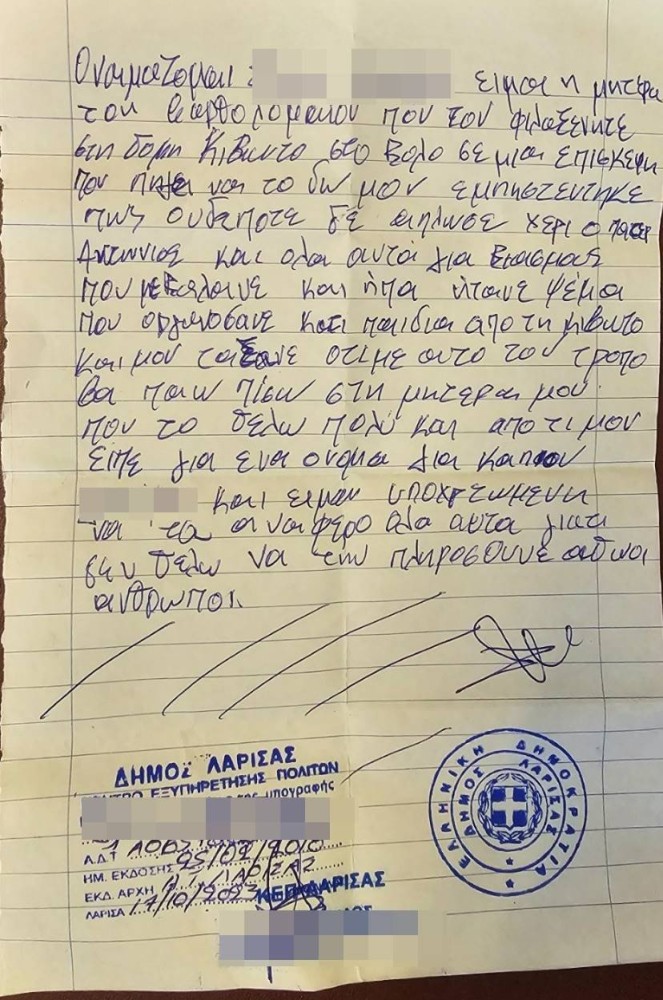 Ονοιματζομαι :
ειμαι η μητερα
του βαρθολομαιου που τον φιλαξενητε
στη δομη Κιβωντο στο Βολο σε μια επισκεψη
που πηγα να το δω μου εμπηστευτηκε
πως ουδεποτε δε απλωσε χερι ο πατερ
Αντωνιος και ολα αυτα για βιασμους
που και ητανε ψεμα
που οργανοσανε κατι παιδια απο τη κιβωτο
και μου οτι με αυτο τον τροπο
θα παω πισω στη μητερα μου
που το θελω πολυ και απο τι μου
ειπε για ενα ονομα για καπιον
και ειμαι υποχρεωμενη
να τα αναφερο ολα αυτα γιατι
δεν θελω να την πληροσουνε αθωοι
ανθρωποι.
ΔΗΜΟΣ ΛΑΡΙΣΑΣ
ΚΕΝΤΡΟ ΕΞΥΠΗΡΕΤΗΣΗΣ ΠΟΛΙΤΩΝ
υπογραφής
Α.Δ.Τ.
ΗΜ. ΕΚΔΟΣΗΣ 05/07/2010
ΕΚΔ. ΑΡΧΗ ΛΑΡΙΣΑΣ
ΛΑΡΙΣΑ 17/10/2023
ΚΕΠ ΛΑΡΙΣΑΣ
ΕΛΛΗΝΙΚΗ ΔΗΜΟΚΡΑΤΙΑ
ΔΗΜΟΣ ΛΑΡΙΣΑΣ